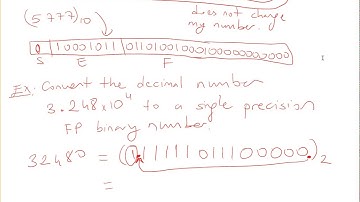 does not change
(5777)10 my number.
0 10001011 01101001000100000000000
S E F
Ex. Convert the decimal number
3.248x10^4 to a single precision
FP binary number.
32480 = (1 11111011100000.)2
=